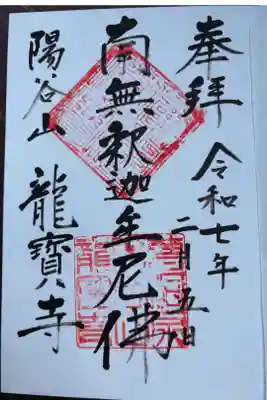 奉拝
令和七年
二月五日
南無釈迦牟尼佛
陽谷山
龍寶寺